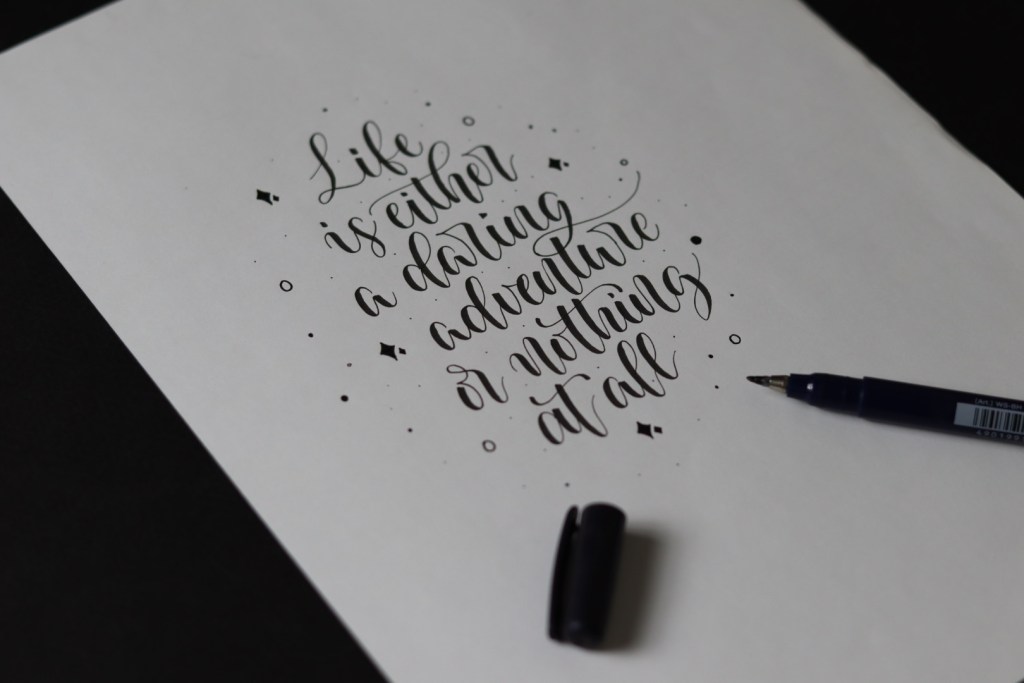 Life
is either
a daring
adventure
or nothing
at all